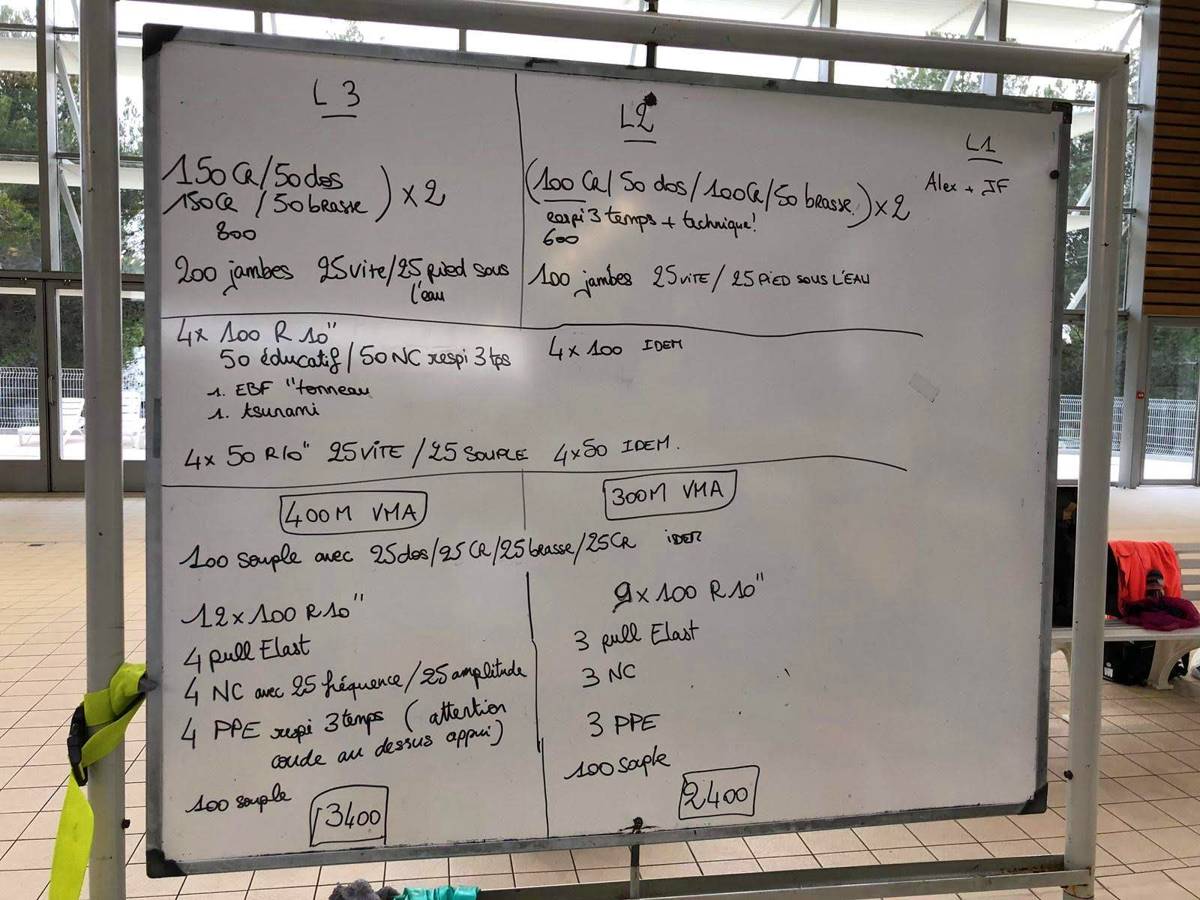 L3
150CR/50dos
150CR/50brasse ) x2
800
200 jambes 25vite/25 pied sous
l'eau
L2
(100 CR/50 dos/100CR/50 brasse.) x2
respi 3 temps + technique!
600
100 jambes 25 VITE/25 PIED SOUS L'EAU
L1
Alex + JF
4x 100 R 10"
50 éducatif/50 NC respi 3 tps
1. EBF "tonneau
1. tsunami
4x 50 R10" 25 VITE/25 SOUPLE
4x100 IDEM
4x50 IDEM.
400M VMA
300M VMA
100 souple avec 25dos/25CR/25brasse/25CR idem
12x100 R10"
4 pull Elast
4 NC avec 25 fréquence/25 amplitude
4 PPE respi 3 temps (attention
coude au dessus appui)
100 souple
3400
9x100 R10"
3 pull Elast
3 NC
3 PPE
100 souple
2400